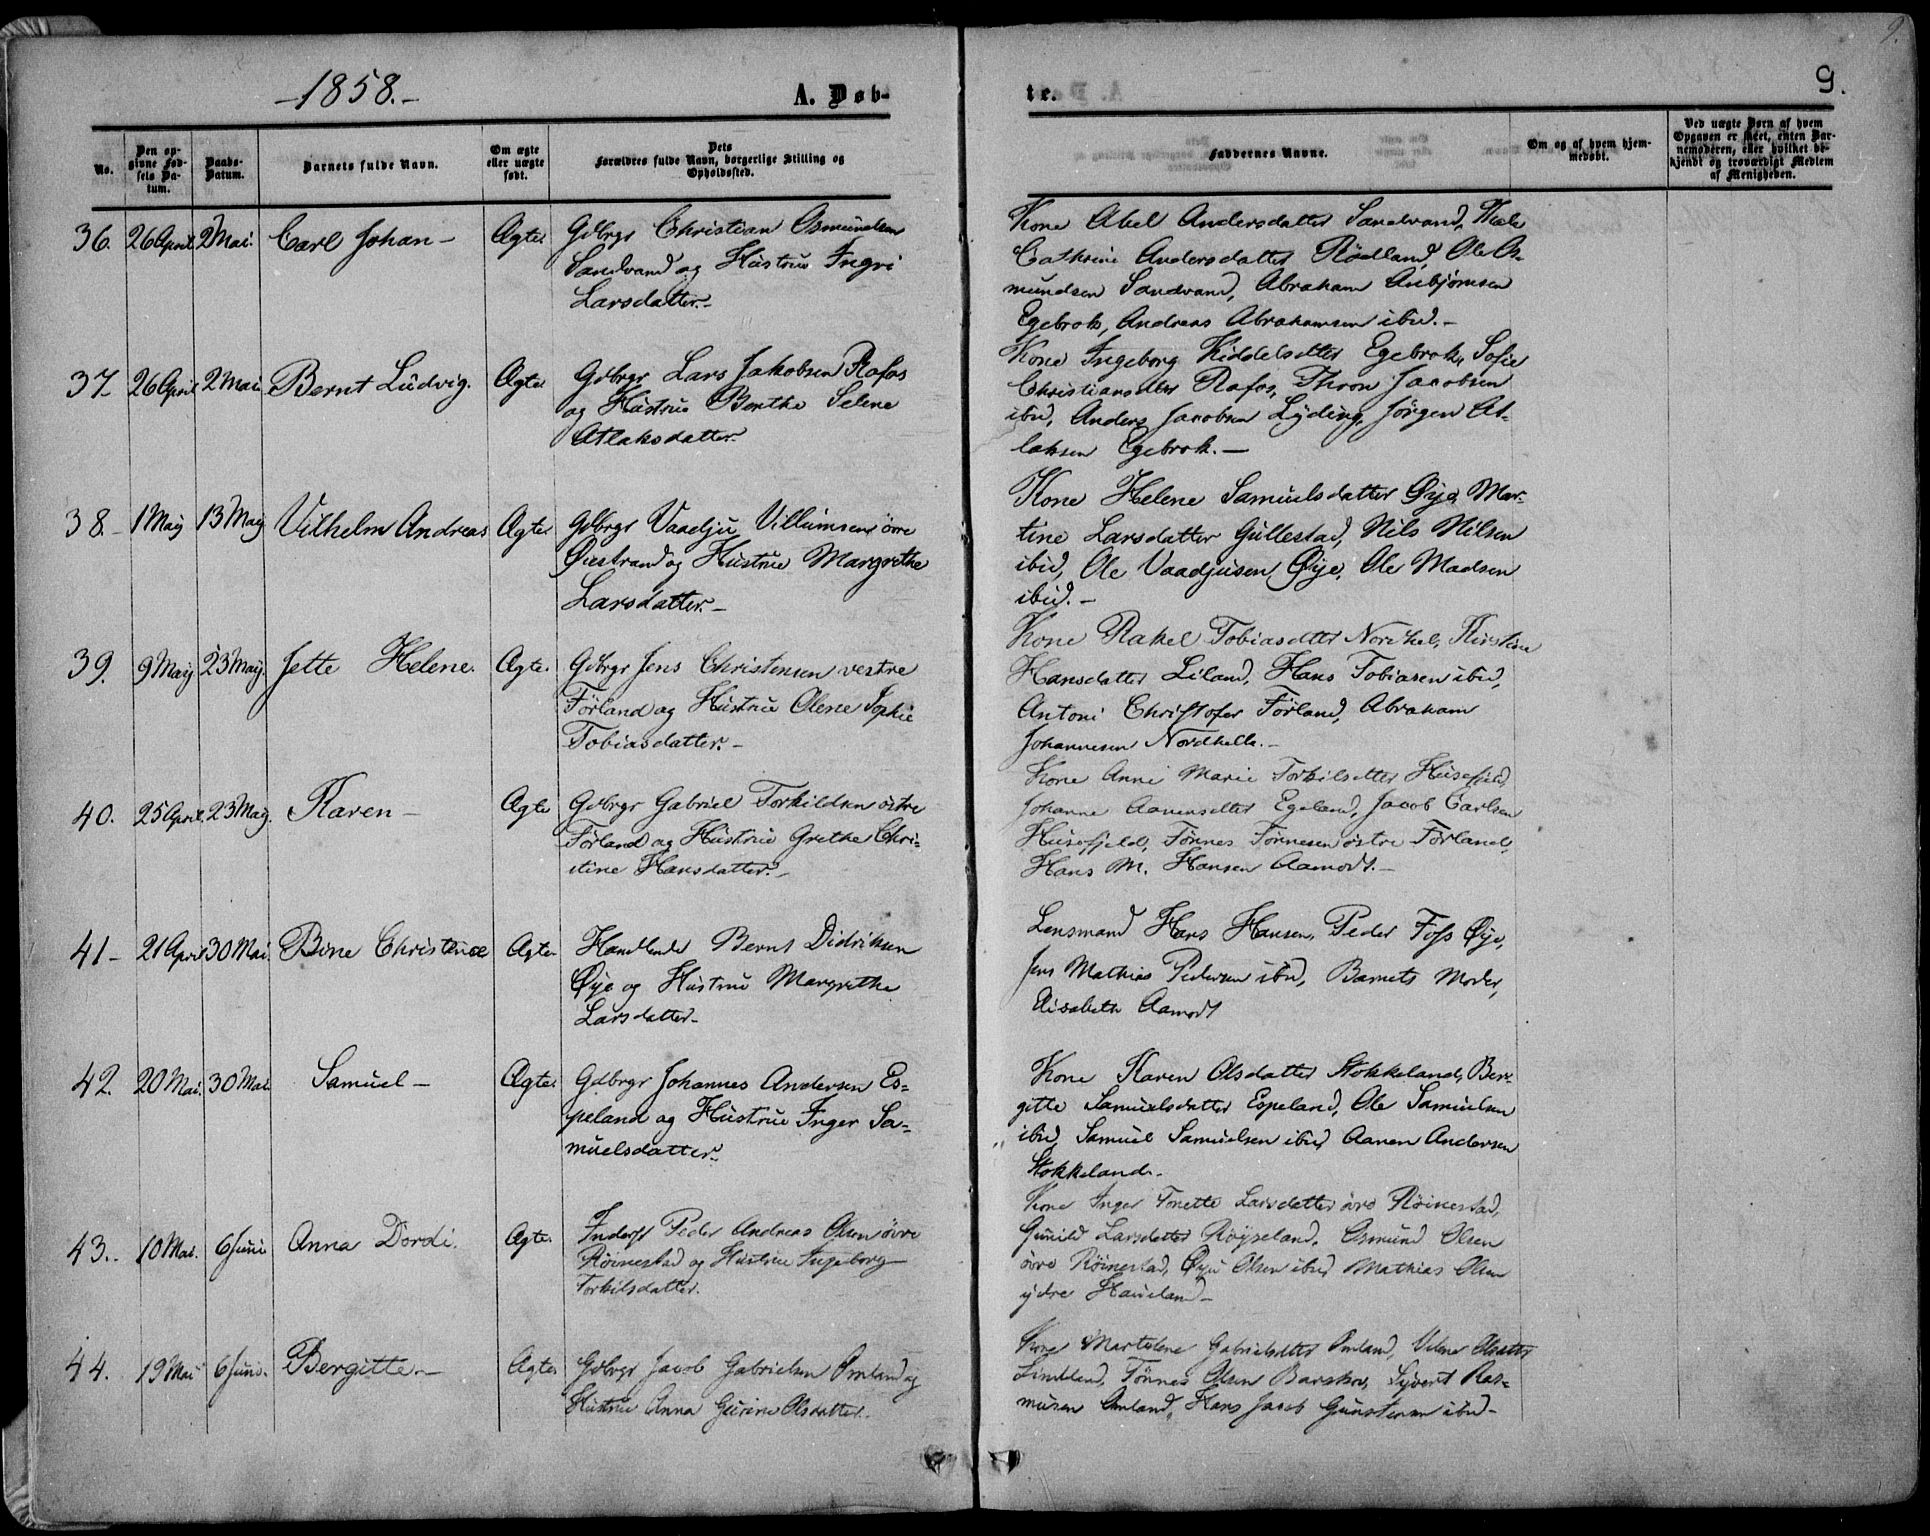 9.
1858.
A. Døb-
te.
9.
No.
Den op-
givne Fød-
sels Da-
tum.
Daabs-
Datum.
Barnets fulde Navn.
Om ægte
eller uægte
født.
Dets
Forældres fulde Navn, borgerlige Stilling og
Opholdssted.
Faddernes Navne.
Om og af hvem hjem-
medøbt.
Ved uægte Børn af hvem
Opgaven er skeet, enten Bar-
nemoderen, eller hvilket be-
kjendt og troværdigt Medlem
af Menigheden.
36. 26 April 2 Mai. Carl Johan – Ægte. Gdbrgr Christian Osmundsen
Sandvand og Hustrue Ingri
Larsdatter.–
Kone Abel Andersdatter Sandvand,
Cathrine Andersdatter Rødland, Ole Os-
mundsen Sandvand, Abraham Anbjørnsen
Egebrok, Andreas Abrahamsen ibid.–
37. 26 April 2 Mai Bernt Ludvig. Ægte Gdbrgr Lars Jakobsen Rafos
og Hustrue Berthe Selene
Atlaksdatter.
Kone Ingeborg Kiddelsdtter Egebrok, Sofie
Christiansdtr Rafos, Thron Jacobsen
ibid, Anders Jacobsen Lyding, Jörgen At-
laksen Egebrok.–
38.– 1 May 13 May Vilhelm Andreas Ægte Gdbrgr Vaadju Villumsen övre
Øiestrand og Hustrue Margrethe
Larsdatter.–
Kone Helene Samuelsdatter Øye, Mar-
tine Larsdatter Gullestad, Nils Nilsen
ibid, Ole Vaadjusen Øye, Ole Madsen
ibid.–
39. 9 May 23 May. Jette Helene. Ægte. Gdbrgr Jens Christensen vestre
Förland og Hustrue Olene Sophie
Tobiasdatter.–
Kone Rakel Tobiasdtter Nordhel, Kirstine
Hansdatter Liland, Hans Tobiasen ibid,
Antoni Christofer Förland, Abraham
Johannesen Nordhelle.–
40. 25 April. 23 May. Karen – Ægte Gdbrgr Gabriel Torkildsen östre
Förland og Hustrue Grethe Chri-
stine Hansdatter.–
Kone Anne Marie Torkilsdtter Husefjeld,
Johanne Aanensdtter Egeland, Jacob Carlsen
Husefjeld, Tönnes Tönnesen östre Förland,
Hans M. Hansen Aamodt.–
41– 21 April 30 Mai. Bine Christine Ægte. Handlende Bernt Didriksen
Øye og Hustrue Margrethe
Larsdatter–
Lensmand Hans Hansen, Peder Foss Øye,
Jens Mathias Pedersen ibid, Barnets Moder,
Elisabeth Aamodt
42. 20 Mai. 30 Mai. Samuel – Ægte. Gdbrgr Johannes Andersen Es-
peland og Hustrue Inger Sa-
muelsdatter.
Kone Karen Olsdatter Stokkeland, Ber-
gitte Samuelsdatter Espeland, Ole Samuelsen
ibid, Samuel Samuelsen ibid, Aanen Andersen
Stokkeland.
43. 10 Mai. 6 Juni Anna Dordi. Ægte. Inderst Peder Andreas Olsen övre
Röinestad og Hustrue Ingeborg
Torkilsdatter.
Kone Inger Tonette Larsdatter övre Röinestad,
Gunild Larsdatter Röyseland, Osmund Olsen
övre Röinestad, Olsen ibid, Mathias Olsen
ydre Haueland–
44. 19 Mai 6 Juni. Bergitte.– Ægte Gdbrgr Jacob Gabrielsen Omland og
Hustrue Anna Gurine Olsdatter.
Kone Gabrielsdtter Omland,
Tönnes Olsen Sÿvert Ras-
musen Omland, Hans Jacob Gunstensen ibid–